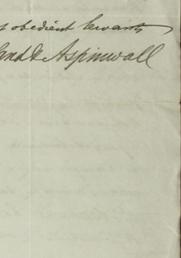 obedient Servants
& Aspinwall